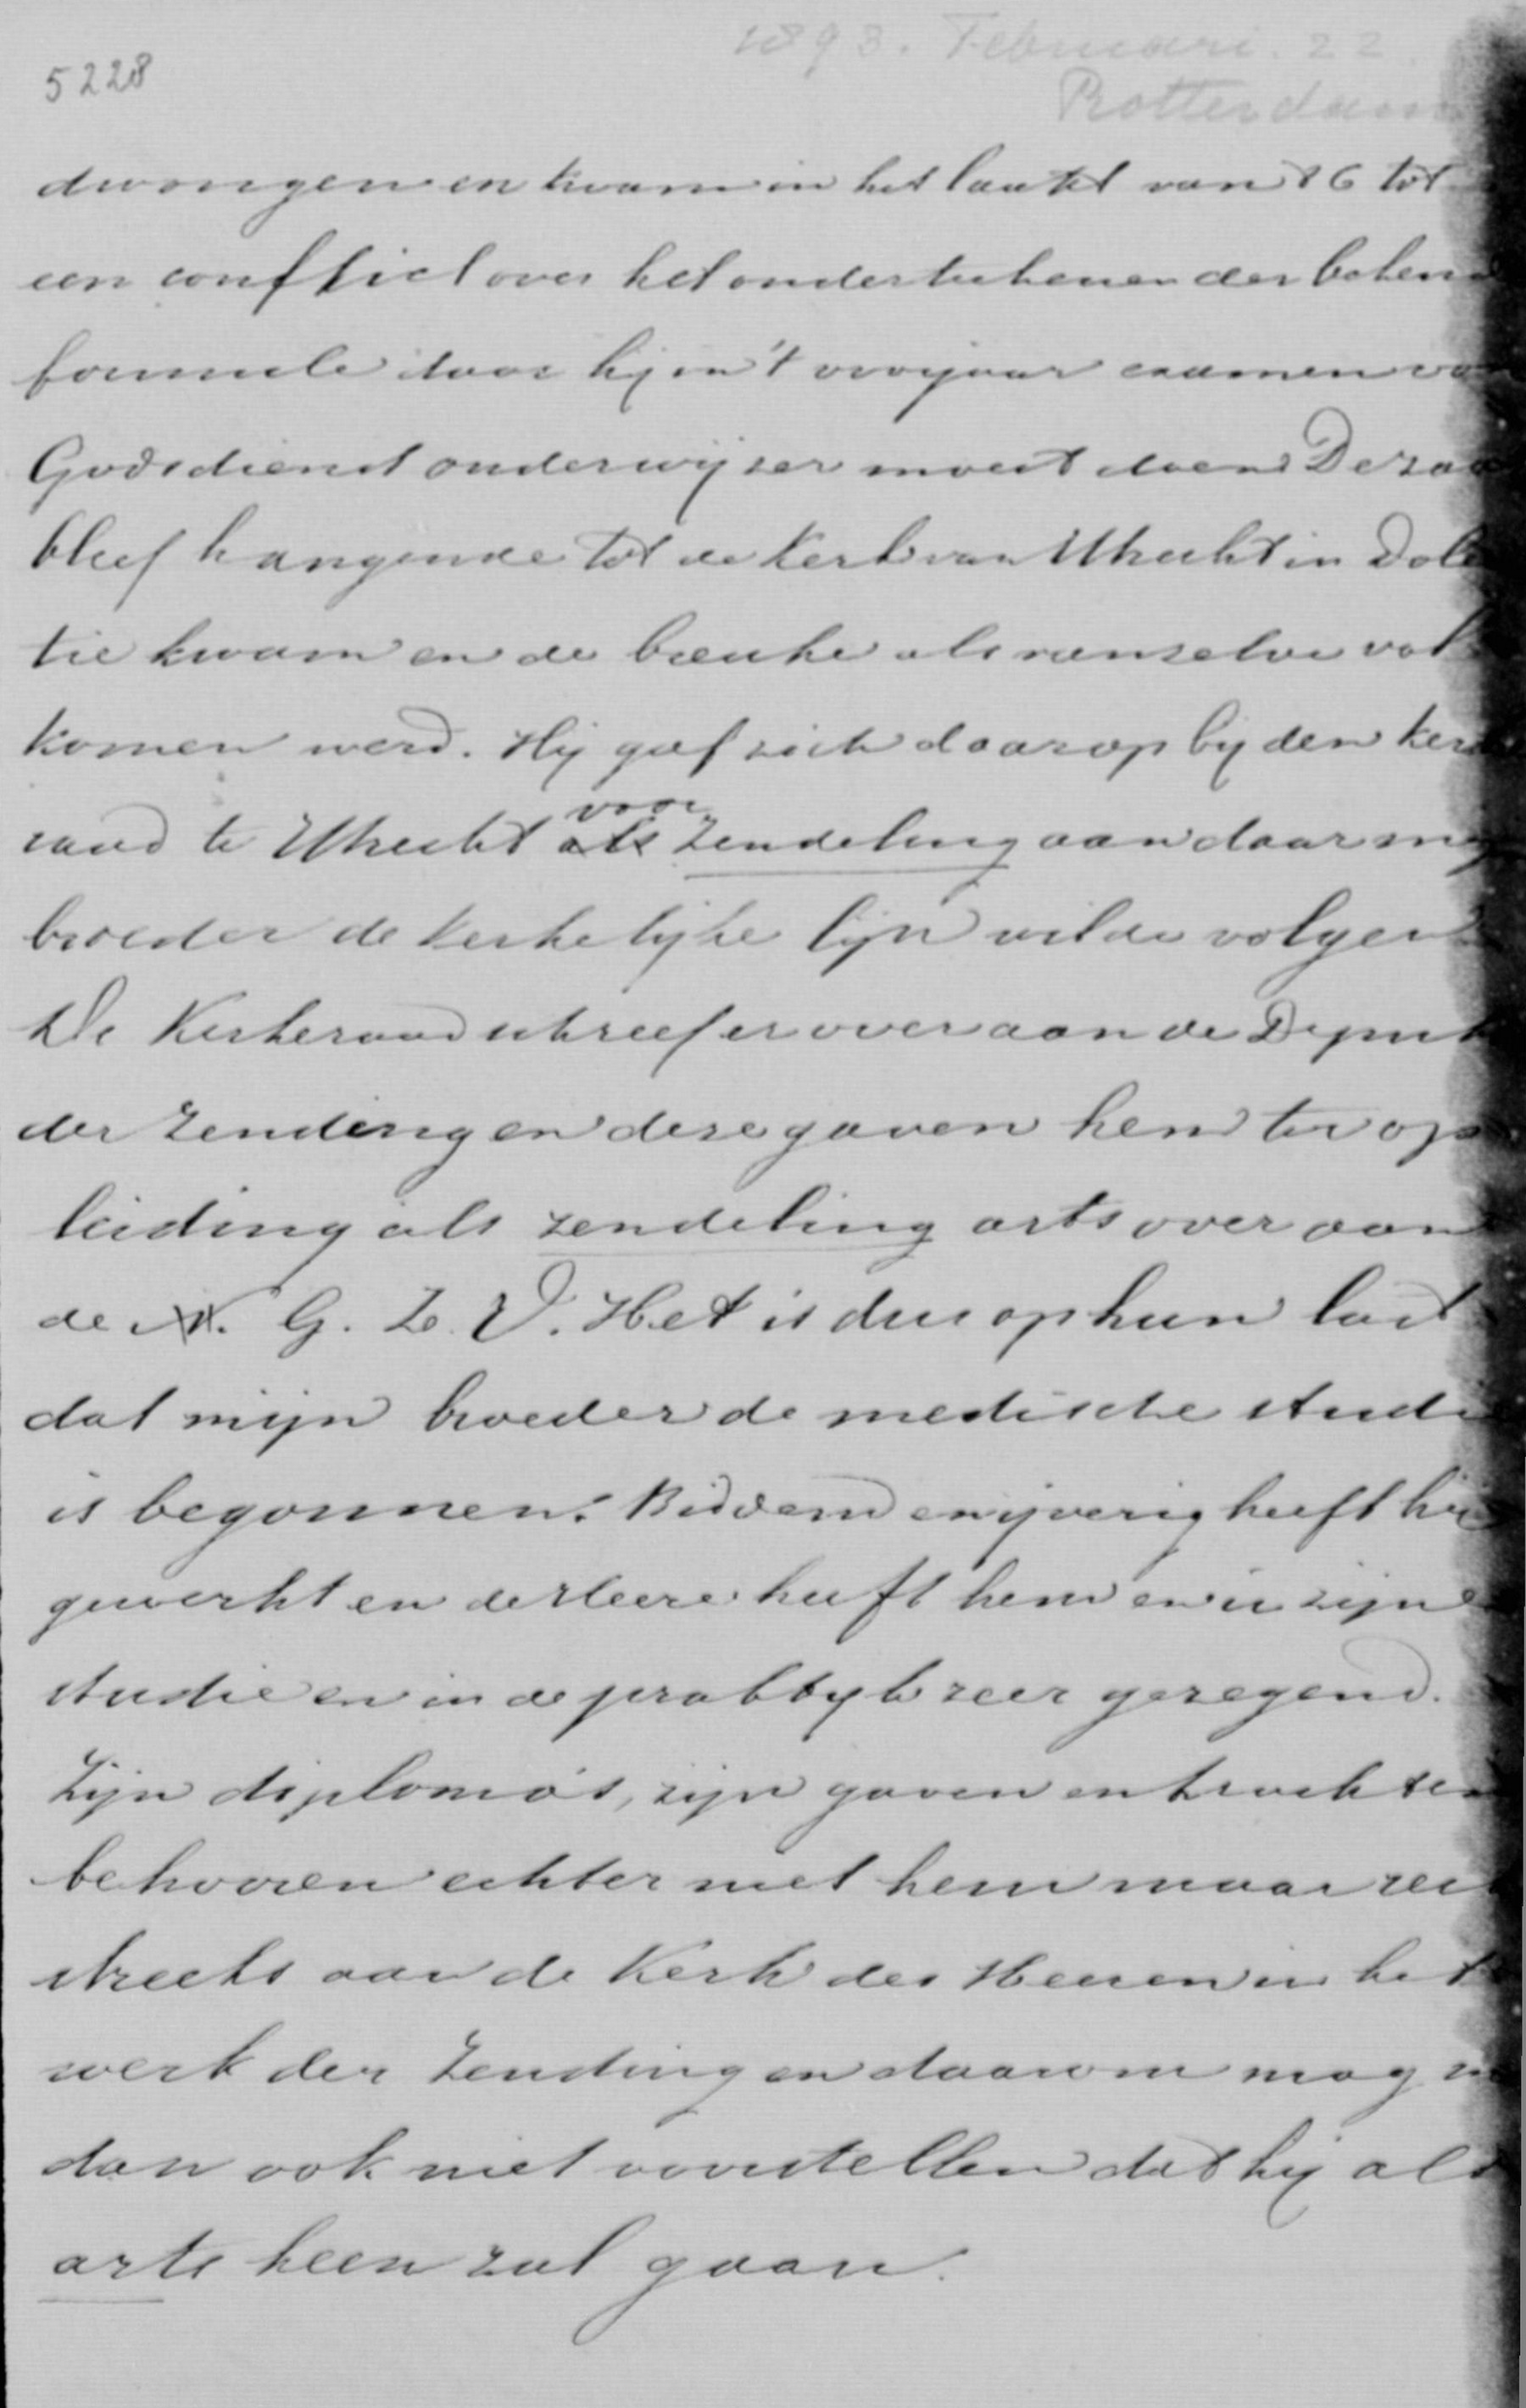 1893. Februari. 22
5228
Rotterdam
dwongen en kwam in het laatst van 86 tot
een conflict over het onderteekenen der
formule daar hij in 't voorjaar examen
Godsdienstonderwijzer moest doen De
bleef hangende tot de Kerk van Utrecht in Dole
tie kwam en de breuke als vanzelve vol
komen werd. Hij gaf zich daarop bij den
raad te Utrecht als voor Zendeling aan daar
broeder de kerkelijke lijn wilde volgen
De Kerkeraad schreef er over aan de
der Zending en deze gaven hem ter op
leiding als zendeling arts over aan
de N. G. Z. V. Het is dus op hun last
dat mijn broeder de medische studi
is begonnen. Biddend en ijverig heeft hij
gewerkt en de Heere heeft hem en in zijn
studie en in de praktijk zeer gezegend.
Zijn diploma's, zijn gaven en krachten
behooren echter niet hem maar
streeks aan de Kerk des Heeren in het
werk der Zending en daarom mag
dan ook niet voorstellen dat hij als
arts heen zal gaan.